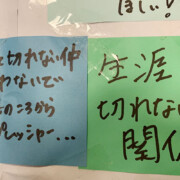 ほしい!
切れない仲
わないで
のころから
プレッシャー...
生涯
切れない
関係